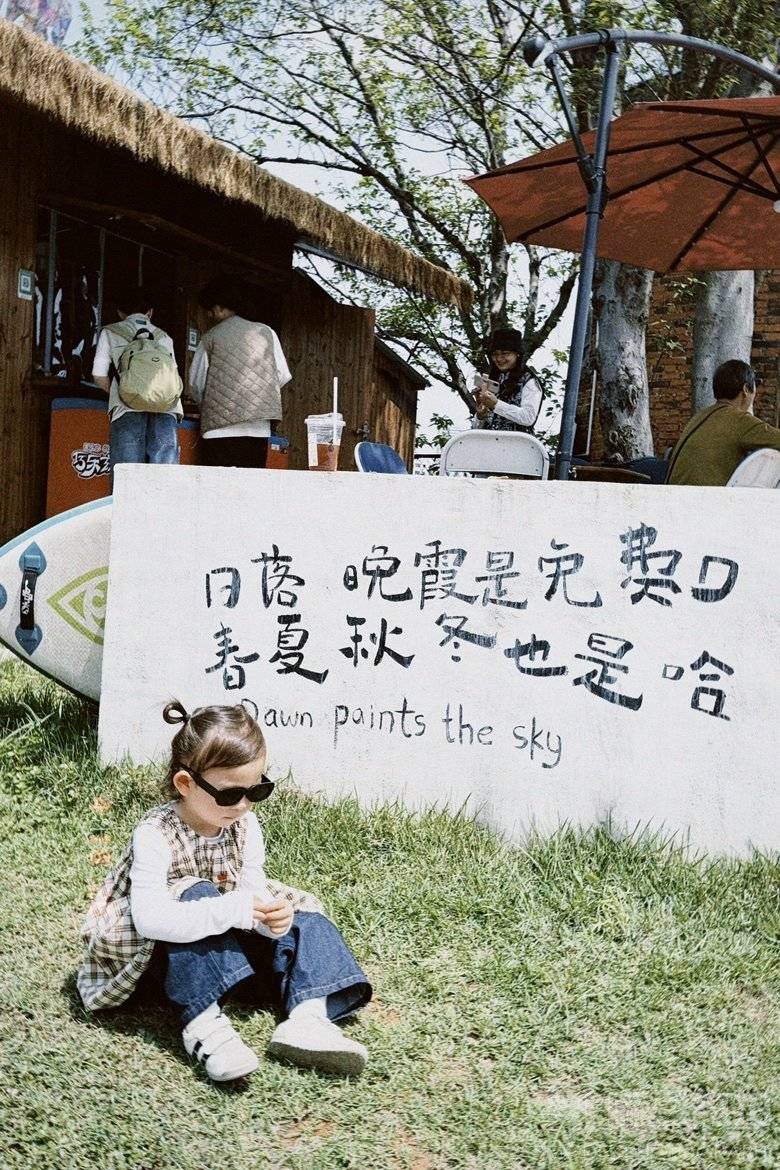 日落 晚霞是免费口
春夏秋冬也是哈
Dawn paints the sky
巧乐兹